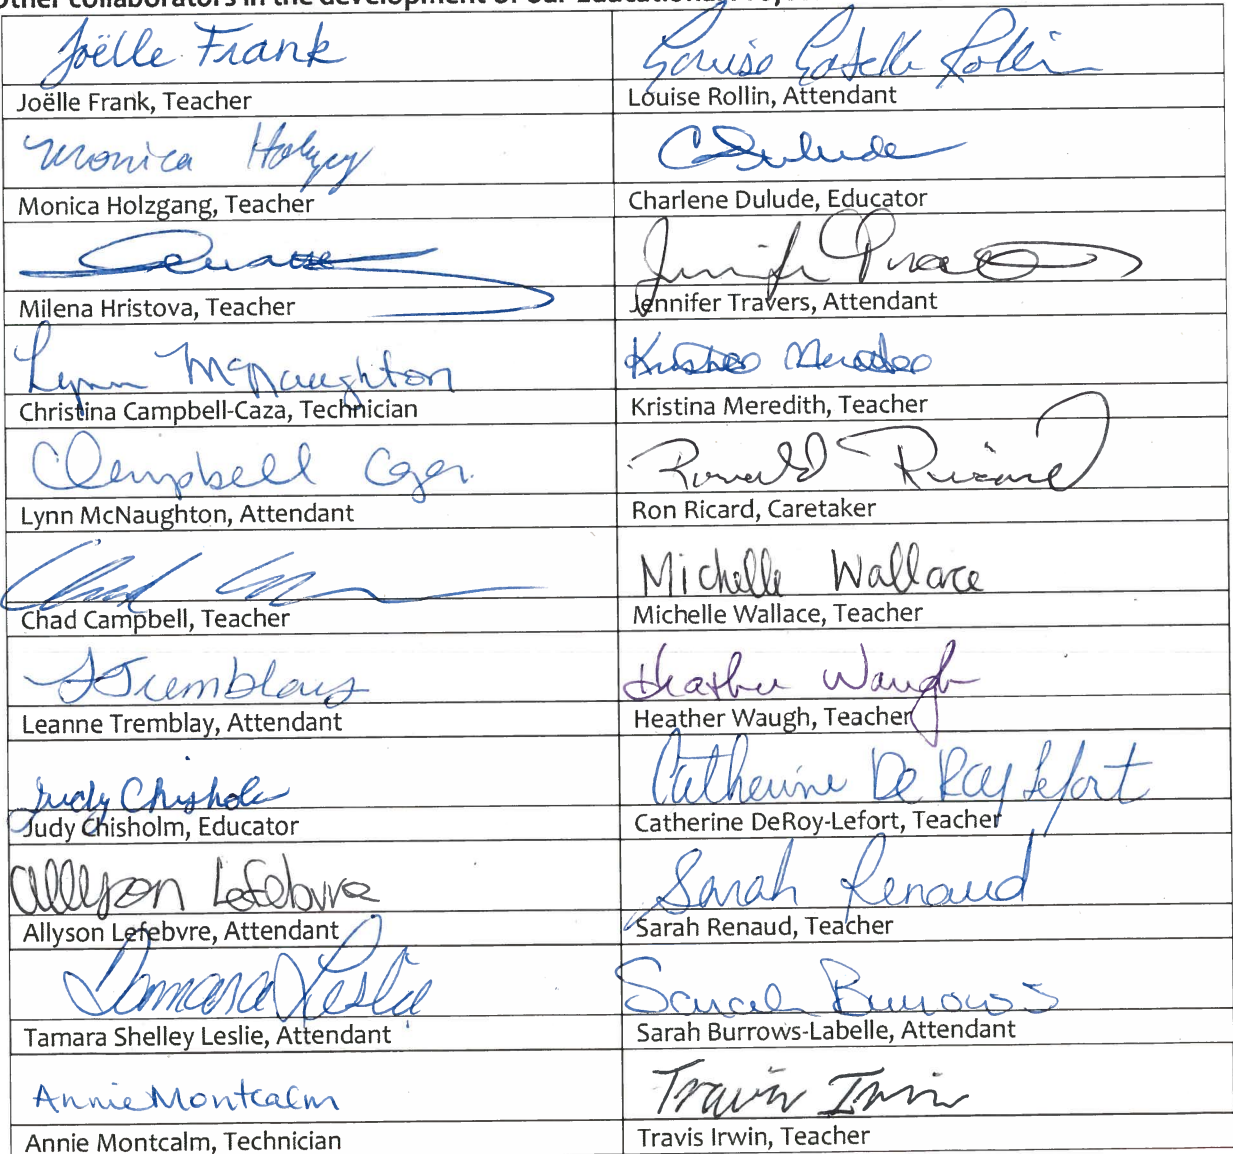 Other collaborators in the development of our Educational
Joëlle Frank
Louise Estelle Rollin
Joëlle Frank, Teacher
Louise Rollin, Attendant
Monica
CDulude
Monica Holzgang, Teacher
Charlene Dulude, Educator
Milena Hristova, Teacher
Jennifer Travers, Attendant
Lynn McNaughton
Christina Campbell-Caza, Technician
Kristina Meredith, Teacher
CCampbell Caza
Ronald Ricard
Lynn McNaughton, Attendant
Ron Ricard, Caretaker
Chad
Michelle Wallace
Chad Campbell, Teacher
Michelle Wallace, Teacher
LTremblay
Heather Waugh
Leanne Tremblay, Attendant
Heather Waugh, Teacher
Judy Chisholm
Catherine DeRoy Lefort
Judy Chisholm, Educator
Catherine DeRoy-Lefort, Teacher
Allyson Lefebvre
Sarah Renaud
Allyson Lefebvre, Attendant
Sarah Renaud, Teacher
Tamara Leslie
Sarah Burrows
Tamara Shelley Leslie, Attendant
Sarah Burrows-Labelle, Attendant
Annie Montcalm
Travis Irwin
Annie Montcalm, Technician
Travis Irwin, Teacher